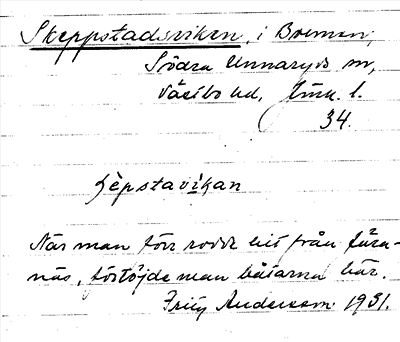 Skeppstadsviken, i Bormen,
Södra Unnaryds sn,
Västbo hd, Jönk. l.
34.
ʃèpstavikan
När man förr rodde hit från Fära-
näs, förtöjde man båtarna här.
Fritz Anderson 1931.